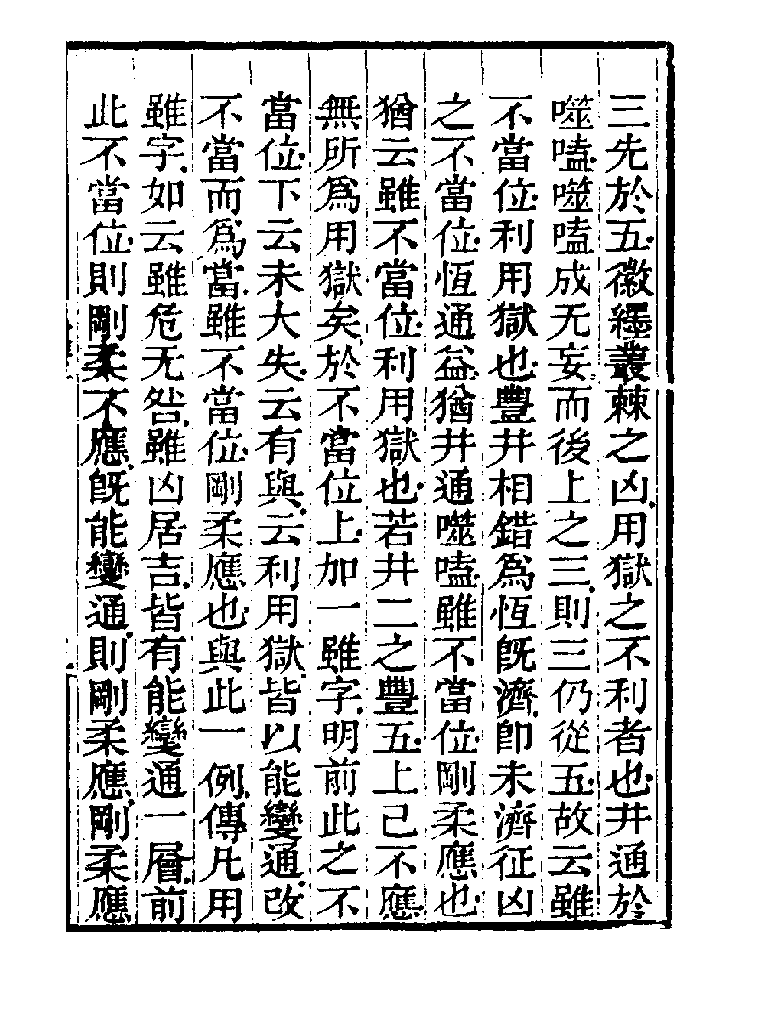 三先於五徽纆叢棘之凶用獄之不利者也井通於
噬嗑噬嗑成无妄而後上之三則三仍從五故云雖
不當位利用獄也豐井相錯爲恆旣濟卽未濟征凶
之不當位恆通益猶井通噬嗑雖不當位剛柔應也
猶云雖不當位利用獄也若井二之豐五上已不應
無所爲用獄矣於不當位上加一雖字明前此之不
當位下云未大失云有與云利用獄皆以能變通改
不當而爲當雖不當位剛柔應也與此一例傳凡用
雖字如云雖危无咎雖凶居吉皆有能變通一層前
此不當位則剛柔不應旣能變通則剛柔應剛柔應